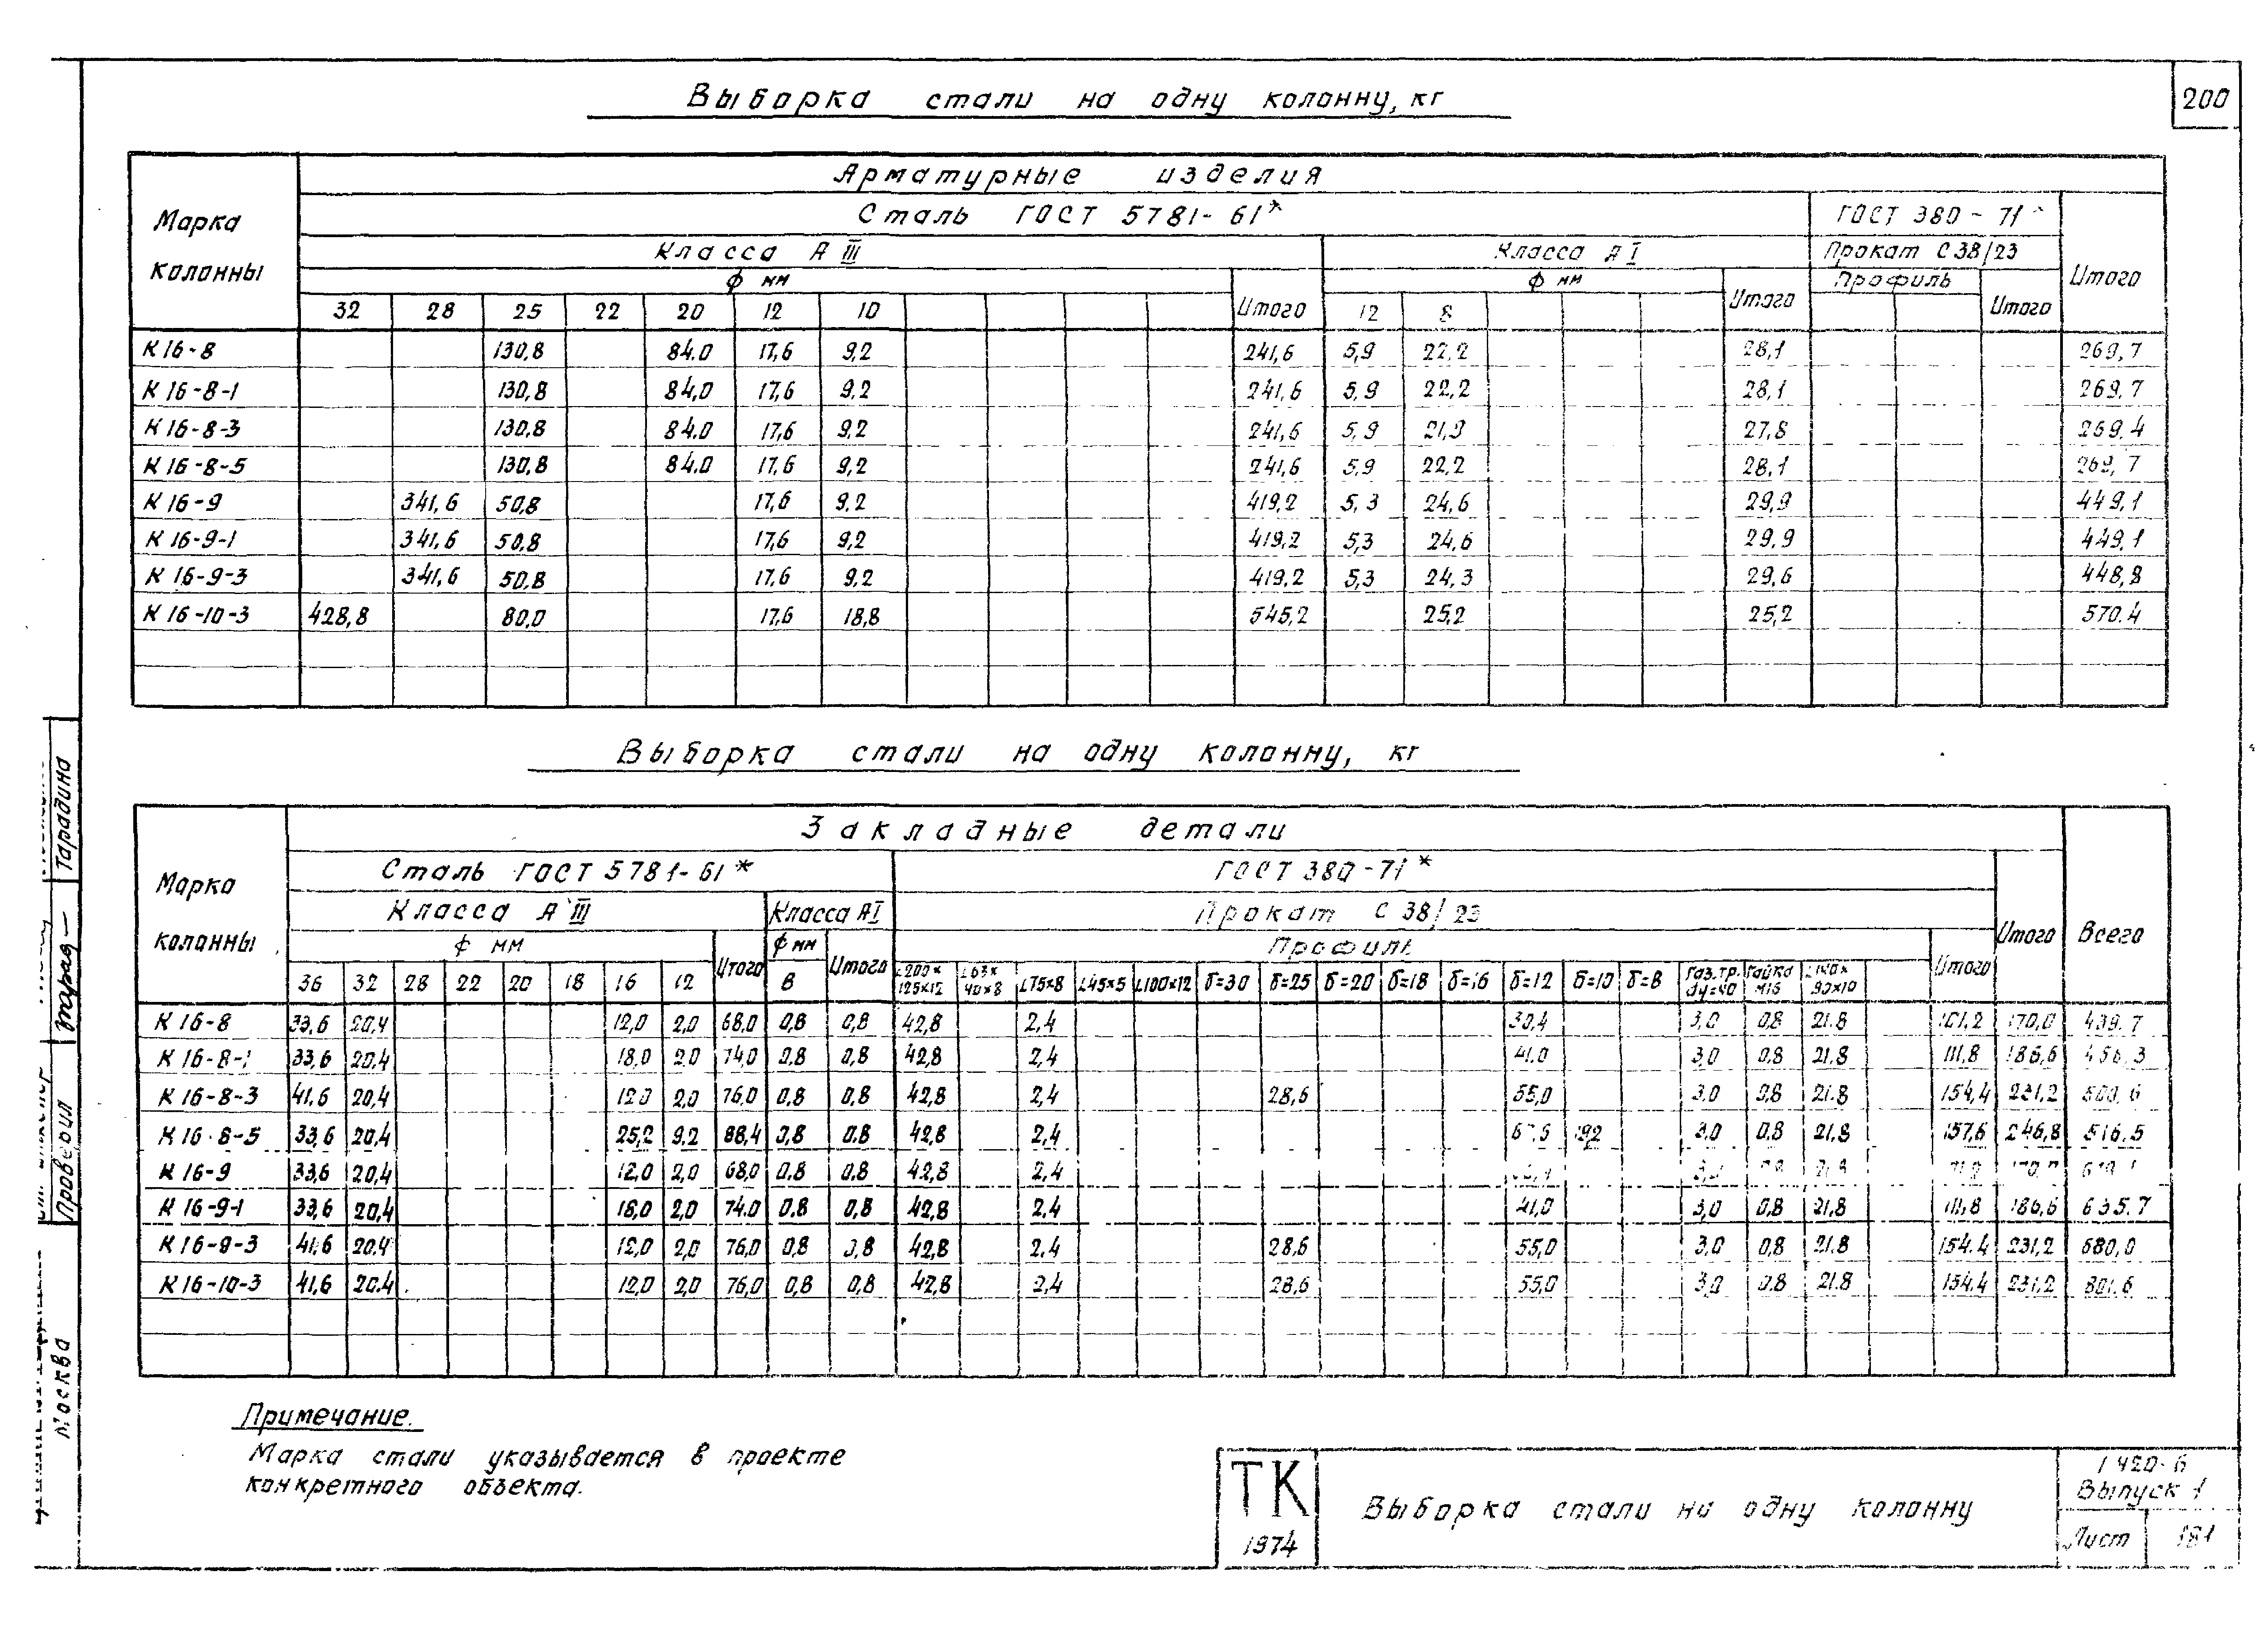 Выборка стали на одну колонну, кг
200
Марка колонны
Арматурные изделия
Сталь ГОСТ 5781-61*
ГОСТ 380-71*
Итого
Класса А III
Класса А I
Прокат С 38/23
Ф мм
Итого
Ф мм
Итого
Профиль
Итого
32 28 25 22 20 12 10 12 8
К 16-8 130,8 84.0 17,6 9,2 241,6 5,9 22,2 28,1 269,7
К 16-8-1 130,8 84,0 17,6 9,2 241,6 5,9 22,2 28,1 269,7
К 16-8-3 130,8 84.0 17,6 9,2 241,6 5,9 21,9 27,8 269.4
К 16-8-5 130,8 84.0 17,6 9,2 241,6 5,9 22,2 28,1 269,7
К 16-9 341,6 50,8 17,6 9,2 419,2 5,3 24,6 29,9 449,1
К 16-9-1 341,6 50,8 17,6 9,2 419,2 5,3 24,6 29,9 449,1
К 16-9-3 341,6 50,8 17,6 9,2 419,2 5,3 24,3 29,6 448,8
К 16-10-3 428,8 80,0 17,6 18,8 545,2 25,2 25,2 570.4
Выборка стали на одну колонну, кг
Марка колонны
Закладные детали
Всего
Сталь ГОСТ 5781-61*
ГОСТ 380-71*
Итого
Класса А III
Класса А I
Прокат С 38/23
Ф мм
Итого
Ф мм
Итого
Профиль
Итого
36 32 28 22 20 18 16 12 8 L200×125×12 L63×40×8 L75×8 L45×5 L100×12 δ=30 δ=25 δ=20 δ=18 δ=16 δ=12 δ=10 δ=8 Газ.тр. dу=40 Гайка М16 L140×90×10
К 16-8 33,6 20,4 12,0 2,0 68,0 0,8 0,8 42,8 2,4 30,4 3,0 0,8 21.8 101,2 170,0 439.7
К 16-8-1 33,6 20,4 18,0 2,0 74,0 0,8 0,8 42,8 2,4 41,0 3,0 0,8 21.8 111,8 186,6 456.3
К 16-8-3 41,6 20,4 12,0 2,0 76,0 0,8 0,8 42,8 2,4 28,6 55,0 3,0 0,8 21.8 154,4 231,2 500,6
К 16-8-5 33,6 20,4 25,2 9,2 88,4 0,8 0,8 42,8 2,4 19,2 3,0 0,8 21,8 157,6 246,8 516.5
К 16-9 33,6 20,4 12,0 2,0 68,0 0,8 0,8 42,8 2,4
К 16-9-1 33,6 20,4 18,0 2,0 74.0 0,8 0,8 42,8 2,4 41,0 3,0 0,8 21,8 111,8 186,6 635.7
К 16-9-3 41,6 20,4 12,0 2,0 76,0 0,8 0,8 42,8 2,4 28,6 55,0 3,0 0,8 21.8 154.4 231,2 680,0
К 16-10-3 41,6 20.4 12,0 2,0 76,0 0,8 0,8 42,8 2,4 28,6 55,0 3,0 0,8 21.8 154.4 231,2 801,6
Примечание.
Марка стали указывается в проекте
конкретного объекта.
ТК
1974
Выборка стали на одну колонну
1 420-6
Выпуск 1
Лист 181
Тарадина
Проверил
Москва